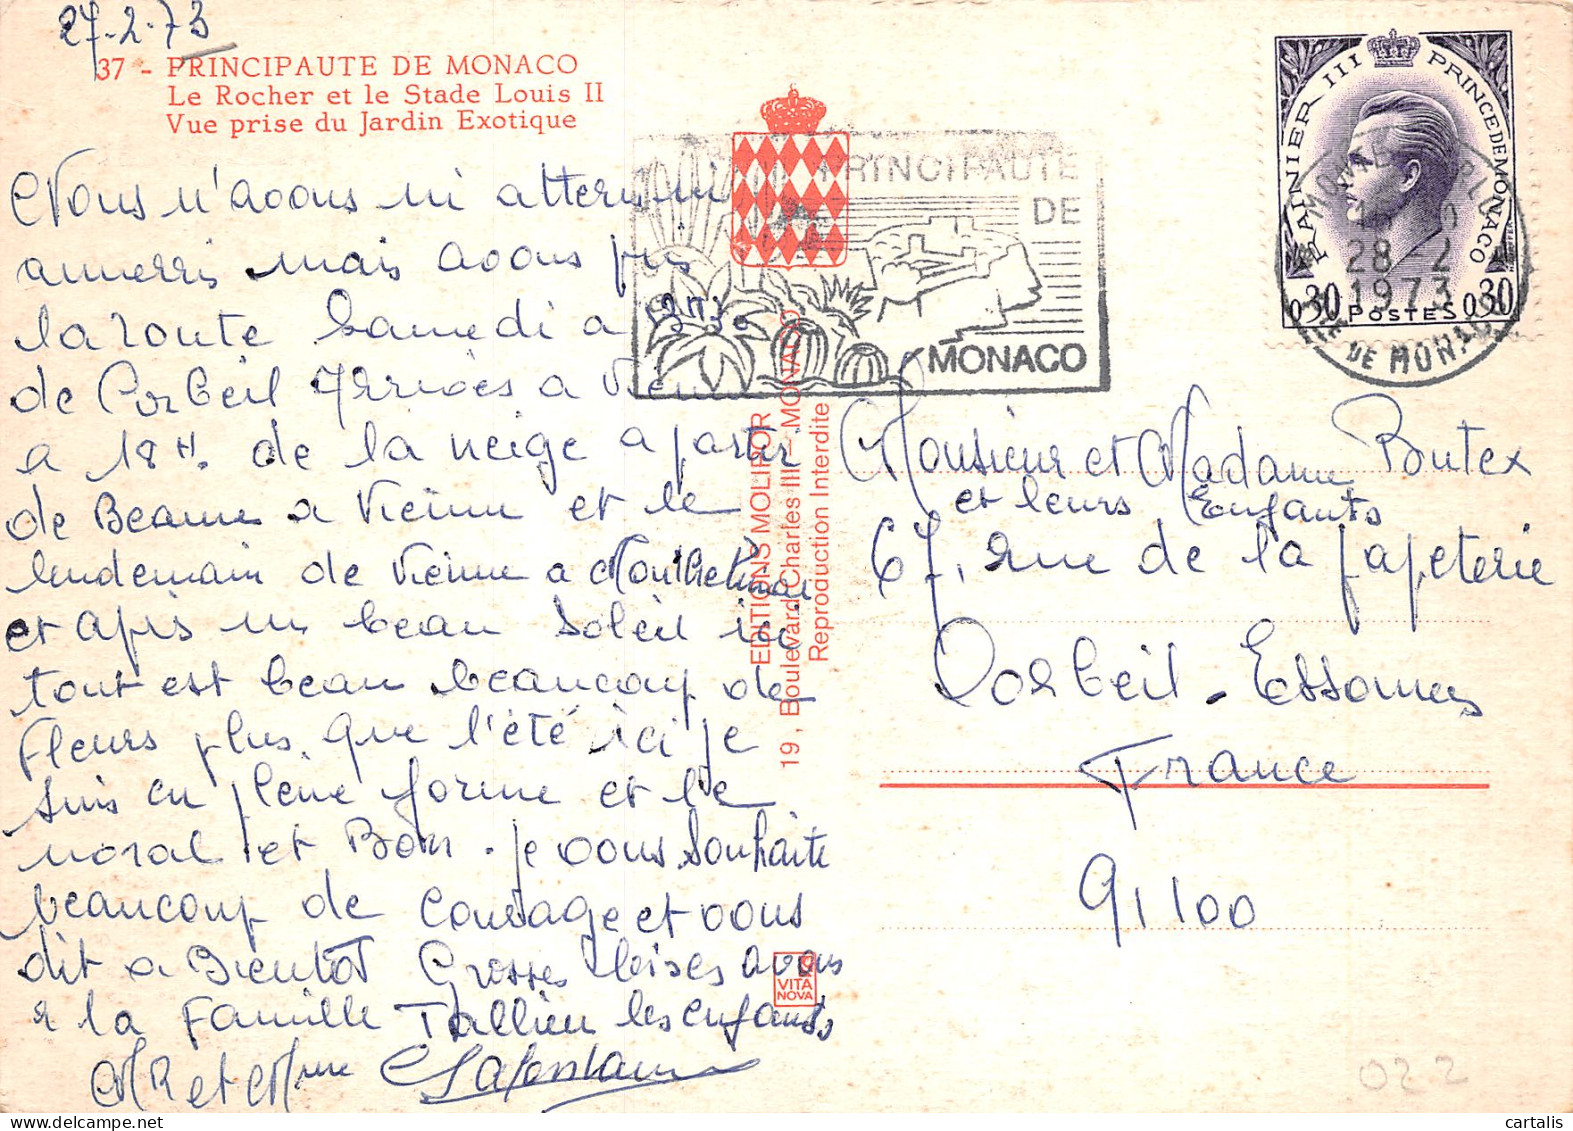 27-2-73
37 - PRINCIPAUTE DE MONACO
Le Rocher et le Stade Louis II
Vue prise du Jardin Exotique
Nous n'avons ni atterri ni
amerris mais avons pris
la route Samedi a 13H30
de Corbeil Arrivés a Vienne
a 18H. de la neige a partir
de Beaune a Vienne et le
lendemain de Vienne a Montélimar
et après un beau Soleil ici
tout est beau beaucoup de
fleurs plus que l'été ici je
suis en pleine forme et le
moral et Bon. je vous souhaite
beaucoup de courage et vous
dit a Bientôt Grosses bises a vous
a la Famille Tallieu les enfants
MR et Mme Lafontaine
PRINCIPAUTE
DE
MONACO
EDITIONS MOLIPOR
19, Boulevard Charles III - MONACO
Reproduction Interdite
VITA
NOVA
RAINIER III PRINCE DE MONACO
0,30 POSTES 0,30
MONTE-CARLO
28-2
1973
PTE DE MONACO
Monsieur et Madame Butex
et leurs Enfants
67, rue de la papeterie
Corbeil-Essonnes
France
91100
022
cartalis
delcampe.net